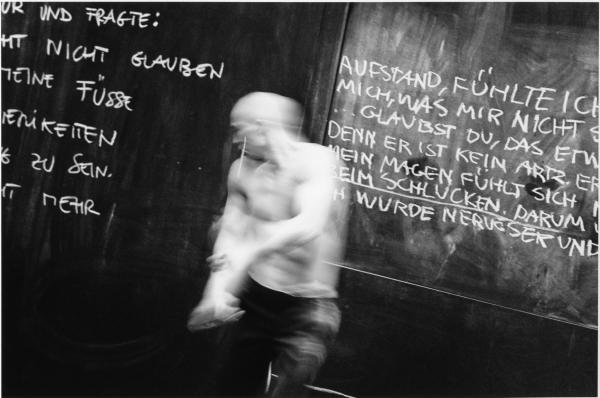 UR UND FRAGTE:
HT NICHT GLAUBEN
MEINE FÜSSE
ERIKEITEN
ZU SEIN.
HT MEHR
AUFSTAND, FÜHLTE ICH
MICH, WAS MIR NICHT S
... GLAUBST DU, DAS ETW
DENN ER IST KEIN ARTZ. ER
MEIN MAGEN FÜHLT SICH
BEIM SCHLUCKEN, DARUM
H WURDE NERVÖSER UND